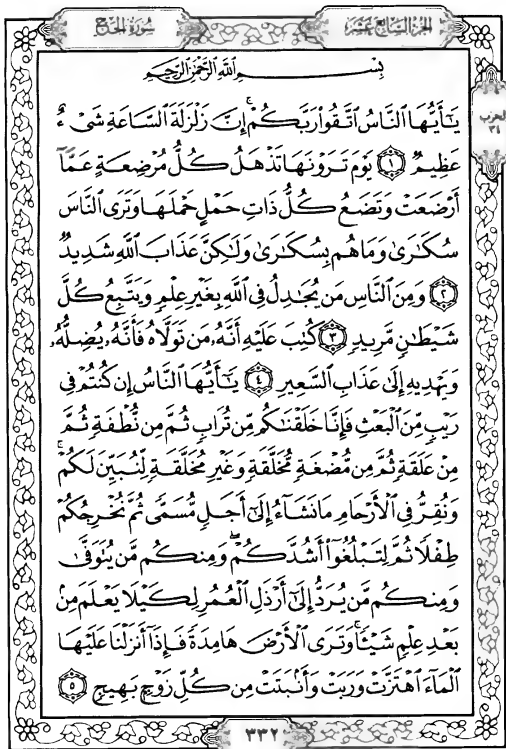 سُورَةُ الحَجِّ
الجُزءُ السَّابِعَ عَشَرَ
الحزب
٣٤
بِسْمِ ٱللَّهِ ٱلرَّحْمَٰنِ ٱلرَّحِيمِ
يَٰٓأَيُّهَا ٱلنَّاسُ ٱتَّقُوا۟ رَبَّكُمْ ۚ إِنَّ زَلْزَلَةَ ٱلسَّاعَةِ شَىْءٌ
عَظِيمٌ ١ يَوْمَ تَرَوْنَهَا تَذْهَلُ كُلُّ مُرْضِعَةٍ عَمَّآ
أَرْضَعَتْ وَتَضَعُ كُلُّ ذَاتِ حَمْلٍ حَمْلَهَا وَتَرَى ٱلنَّاسَ
سُكَٰرَىٰ وَمَا هُم بِسُكَٰرَىٰ وَلَٰكِنَّ عَذَابَ ٱللَّهِ شَدِيدٌ
٢ وَمِنَ ٱلنَّاسِ مَن يُجَٰدِلُ فِى ٱللَّهِ بِغَيْرِ عِلْمٍ وَيَتَّبِعُ كُلَّ
شَيْطَٰنٍ مَّرِيدٍ ٣ كُتِبَ عَلَيْهِ أَنَّهُۥ مَن تَوَلَّاهُ فَأَنَّهُۥ يُضِلُّهُۥ
وَيَهْدِيهِ إِلَىٰ عَذَابِ ٱلسَّعِيرِ ٤ يَٰٓأَيُّهَا ٱلنَّاسُ إِن كُنتُمْ فِى
رَيْبٍ مِّنَ ٱلْبَعْثِ فَإِنَّا خَلَقْنَٰكُم مِّن تُرَابٍ ثُمَّ مِن نُّطْفَةٍ ثُمَّ
مِنْ عَلَقَةٍ ثُمَّ مِن مُّضْغَةٍ مُّخَلَّقَةٍ وَغَيْرِ مُخَلَّقَةٍ لِّنُبَيِّنَ لَكُمْ ۚ
وَنُقِرُّ فِى ٱلْأَرْحَامِ مَا نَشَآءُ إِلَىٰٓ أَجَلٍ مُّسَمًّى ثُمَّ نُخْرِجُكُمْ
طِفْلًا ثُمَّ لِتَبْلُغُوٓا۟ أَشُدَّكُمْ ۖ وَمِنكُم مَّن يُتَوَفَّىٰ
وَمِنكُم مَّن يُرَدُّ إِلَىٰٓ أَرْذَلِ ٱلْعُمُرِ لِكَيْلَا يَعْلَمَ مِنۢ
بَعْدِ عِلْمٍ شَيْـًٔا ۚ وَتَرَى ٱلْأَرْضَ هَامِدَةً فَإِذَآ أَنزَلْنَا عَلَيْهَا
ٱلْمَآءَ ٱهْتَزَّتْ وَرَبَتْ وَأَنۢبَتَتْ مِن كُلِّ زَوْجٍۭ بَهِيجٍ ٥
٣٣٢